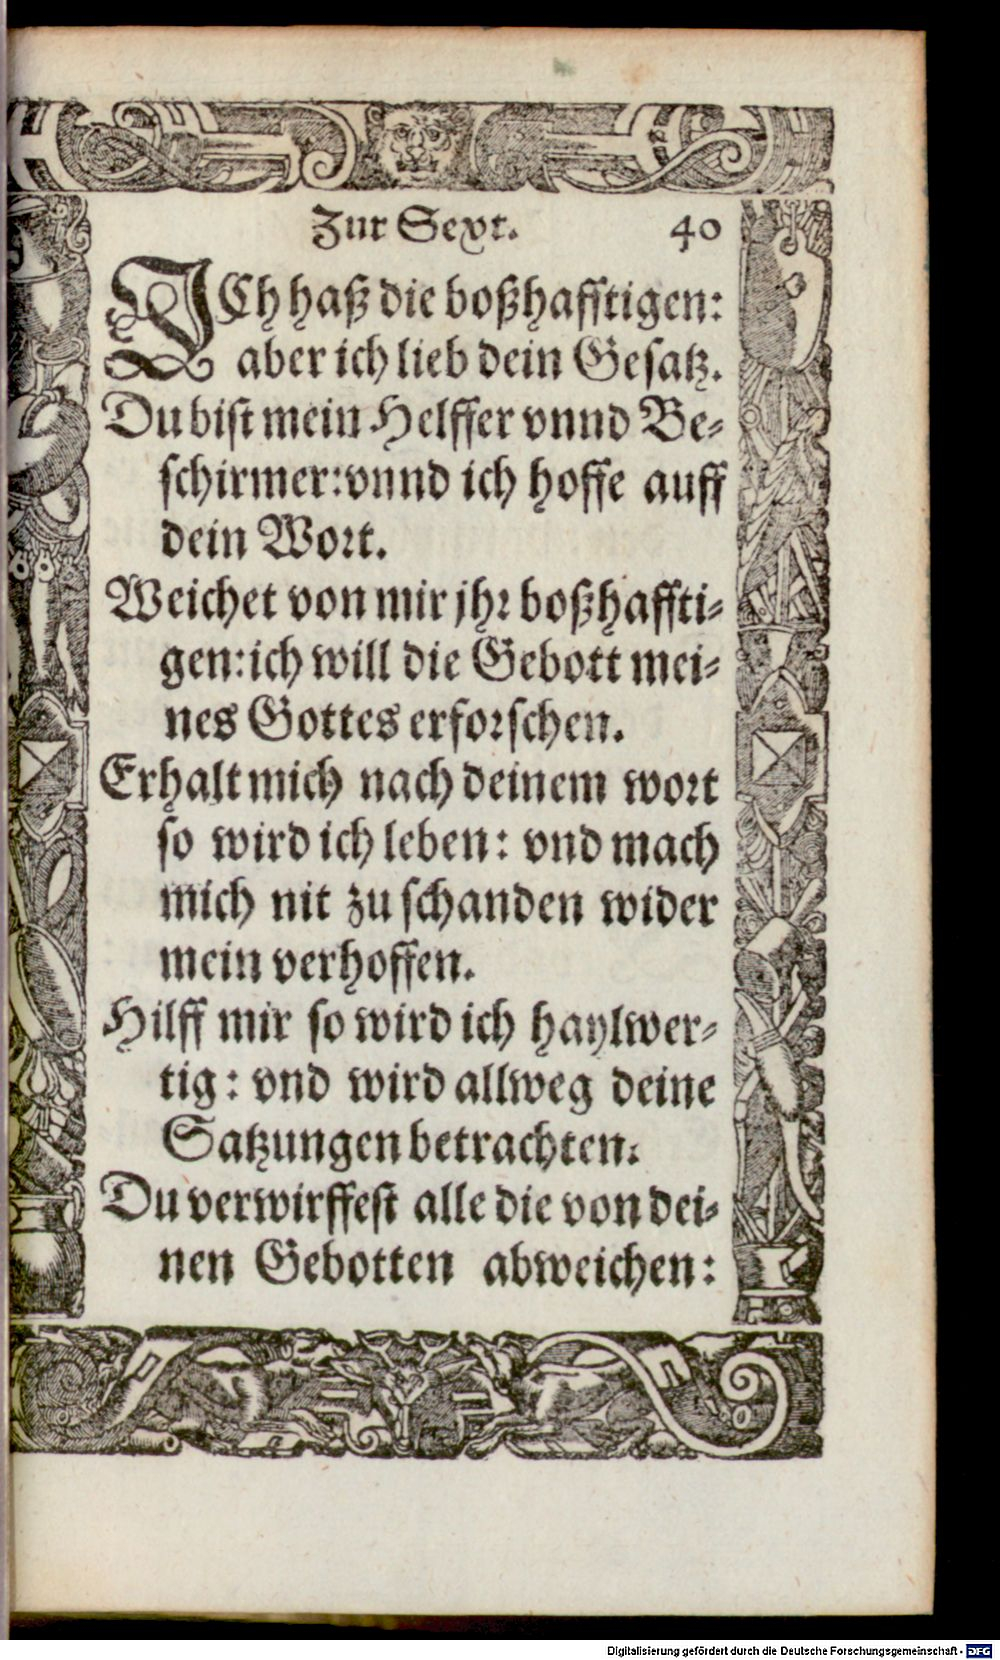 Zur Sext. 40
ICh haß die boßhafftigen:
aber ich lieb dein Gesatz.
Du bist mein Helffer vnnd Be-
schirmer: vnnd ich hoffe auff
dein Wort.
Weichet von mir jhr boßhaffti-
gen: ich will die Gebott mei-
nes Gottes erforschen.
Erhalt mich nach deinem wort
so wird ich leben: vnd mach
mich nit zu schanden wider
mein verhoffen.
Hilff mir so wird ich haylwer-
tig: vnd wird allweg deine
Satzungen betrachten.
Du verwirffest alle die von dei-
nen Gebotten abweichen:
Digitalisierung gefördert durch die Deutsche Forschungsgemeinschaft - DFG